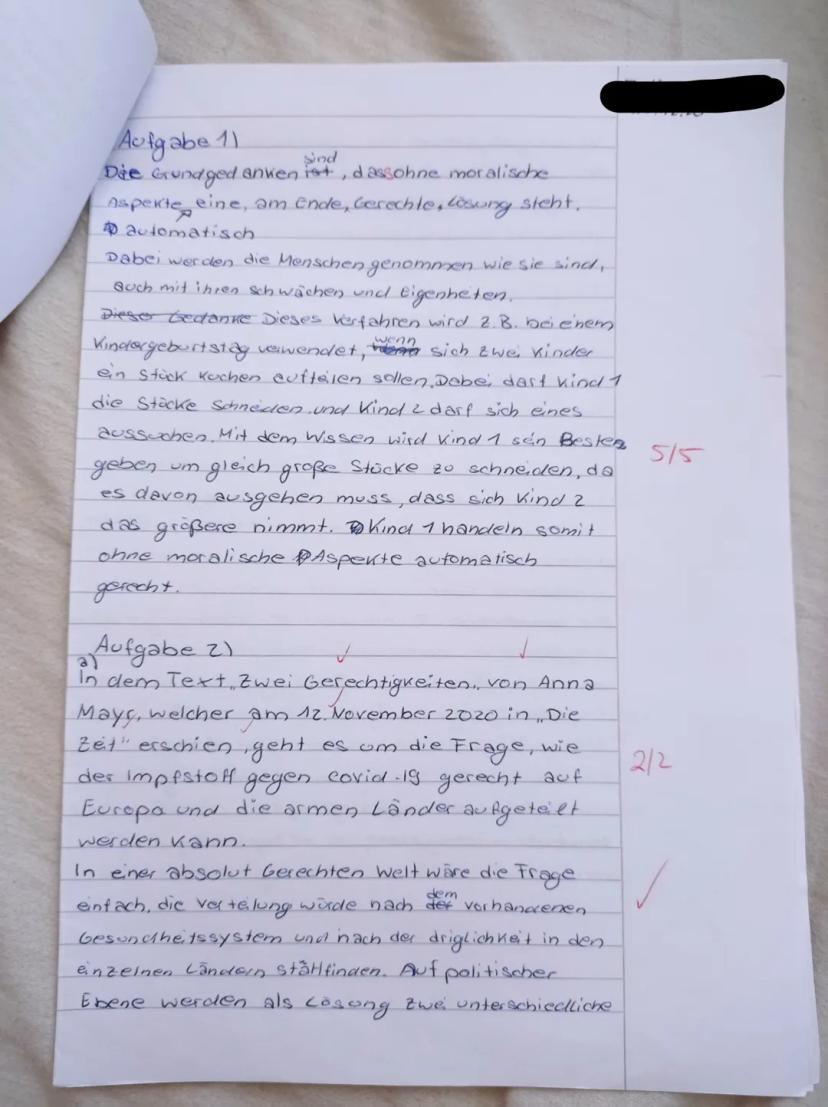 Aufgabe 1)
Die Grundgedanken ist sind, dass ohne moralische
Aspekte eine, am Ende, Gerechte, Lösung steht.
automatisch
Dabei werden die Menschen genommen wie sie sind,
auch mit ihren schwächen und Eigenheten.
Dieser Gedanke Dieses Verfahren wird z.B. bei einem
Kindergeburtstag verwendet, wenn sich zwei Kinder
ein Stück Kuchen aufteilen sollen. Dabei darf Kind 1
die Stücke schneiden und Kind 2 darf sich eines
aussuchen. Mit dem Wissen wird Kind 1 sein Bestes
geben um gleich große Stücke zu schneiden, da
es davon ausgehen muss, dass sich Kind 2
das größere nimmt. Kind 1 handeln somit
ohne moralische Aspekte automatisch
gerecht.
5/5
Aufgabe 2)
a)
In dem Text „Zwei Gerechtigkeiten„ von Anna
Mayr, welcher am 12. November 2020 in „Die
Zeit" erschien, geht es um die Frage, wie
der Impfstoff gegen covid-19 gerecht auf
Europa und die armen Länder aufgeteilt
werden kann.
2/2
In einer absolut Gerechten Welt wäre die Frage
einfach, die Verteilung würde nach der dem vorhandenen
Gesundheitssystem und nach der driglichkeit in den
einzelnen Ländern stattfinden. Auf politischer
Ebene werden als Lösung zwei unterschiedliche